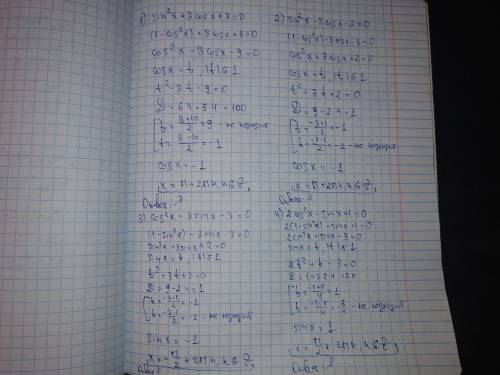 1) sin²x + 8cosx + 8 = 0
(1 - cos²x) + 8cosx + 8 = 0
cos²x - 8cosx - 9 = 0
cosx = t, |t| ≤ 1
t² - 8t - 9 = 0
D = 64 + 54 = 100
[t = (8+10)/2 = 9 - не подходит
[t = (8-10)/2 = -1
cosx = -1
x = π + 2πn, n ∈ Z,
Ответ:
2) sin²x - 3cosx - 3 = 0
(1 - cos²x) - 3cosx - 3 = 0
cos²x + 3cosx + 2 = 0
cosx = t, |t| ≤ 1
t² + 3t + 2 = 0
D = 9 - 2·4 = 1
[t = (-3+1)/2 = -1
[t = (-3-1)/2 = -2 - не подходит
cosx = -1
x = π + 2πn, n ∈ Z,
Ответ:
3) cos²x - 3sinx - 3 = 0
(1 - sin²x) - 3sinx - 3 = 0
sin²x + 3sinx + 2 = 0
sinx = t, |t| ≤ 1
t² + 3t + 2 = 0
D = 9 - 2·4 = 1
[t = (-3+1)/2 = -1
[t = (-3-1)/2 = -2 - не подходит
sinx = -1
x = -π/2 + 2πn, n ∈ Z,
Ответ:
4) 2cos²x - sinx + 1 = 0
2(1 - sin²x) - sinx + 1 = 0
2sin²x + sinx - 3 = 0
sinx = t, |t| ≤ 1
2t² + t - 3 = 0
[t = (-1+5)/4 = 1
- не подходит
sinx = 1
x = π/2 + 2πn, n ∈ Z,
Ответ: